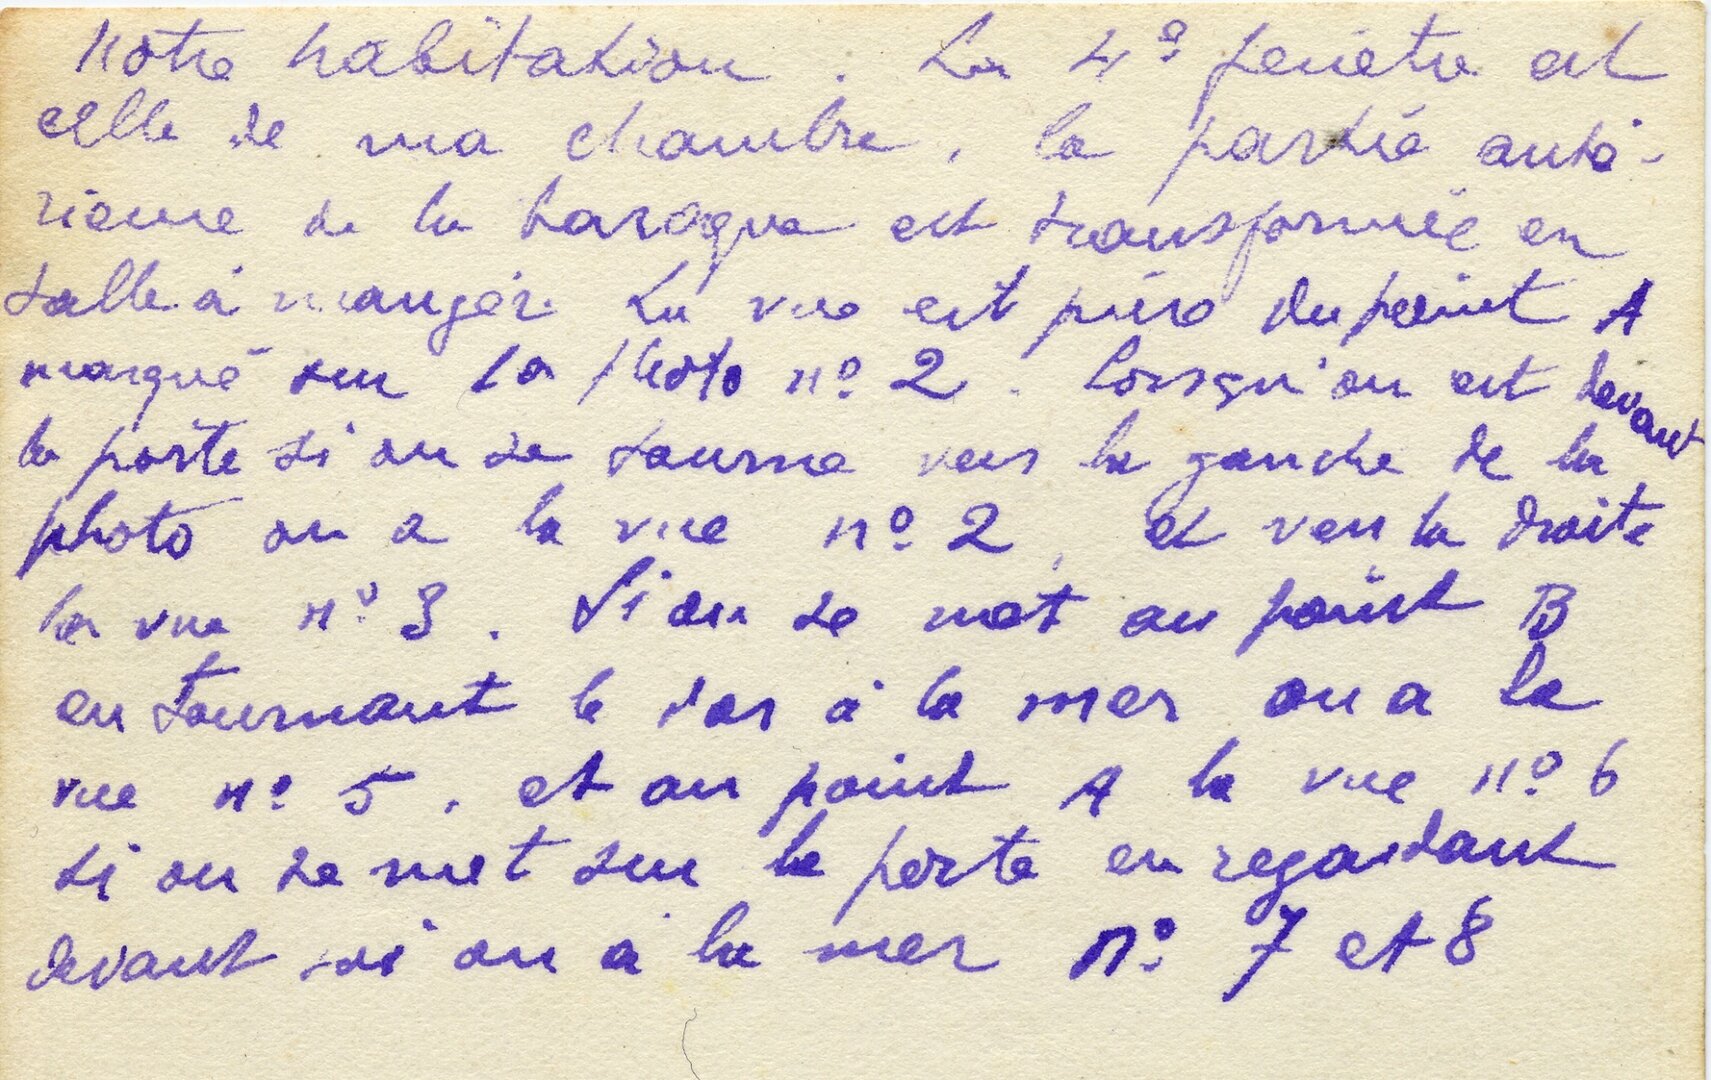 Notre habitation. La 4e fenêtre est
celle de ma chambre, la partie anté-
rieure de la baraque est transformée en
salle à manger. La vue est prise du point A
marqué sur la photo nº 2. Lorsqu'on est devant
la porte si on se tourne vers la gauche de la
photo on a la vue nº 2, et vers la droite
la vue nº 3. Si on se met au point B
en tournant le dos à la mer on a la
vue nº 5, et au point A la vue nº 6
si on se met sur la porte en regardant
devant soi on a la mer nº 7 et 8